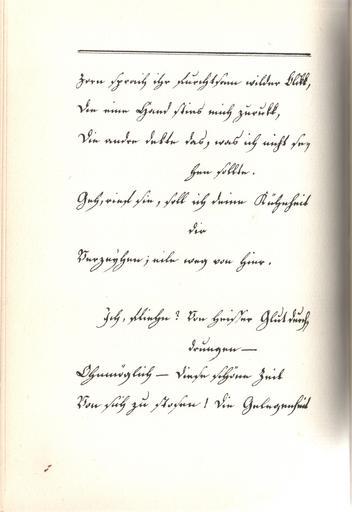 Zorn sprach ihr furchtsam wilder Blikk,
Die eine Hand sties mich zurükk,
Die andre dekte das, was ich nicht se,
hen sollte.
Geh, rief sie, soll ich deine Kühnheit
dir
Verzeyhen; eile weg von hier.
Ich, fliehn? Von heisser Glut durch,
drungen —
Ohnmöglich — diese schöne Zeit
Von sich zu stosen! Die Gelegenheit